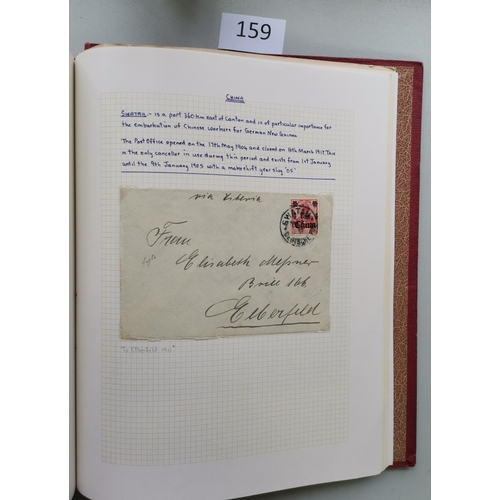 159
CHINA
SWATAU - is a port 360 km east of Canton and is of particular importance for
the embarkation of Chinese workers for German New Guinea
The Post Office opened on the 17th May 1904 and closed on 16th March 1917. This
is the only canceller in use during this period and exists from 1st January
until the 9th January 1905 with a makeshift year slug "05"
via Siberia
SWATAU
China
Frau
Elisabeth Messner
Brill 166
Elberfeld